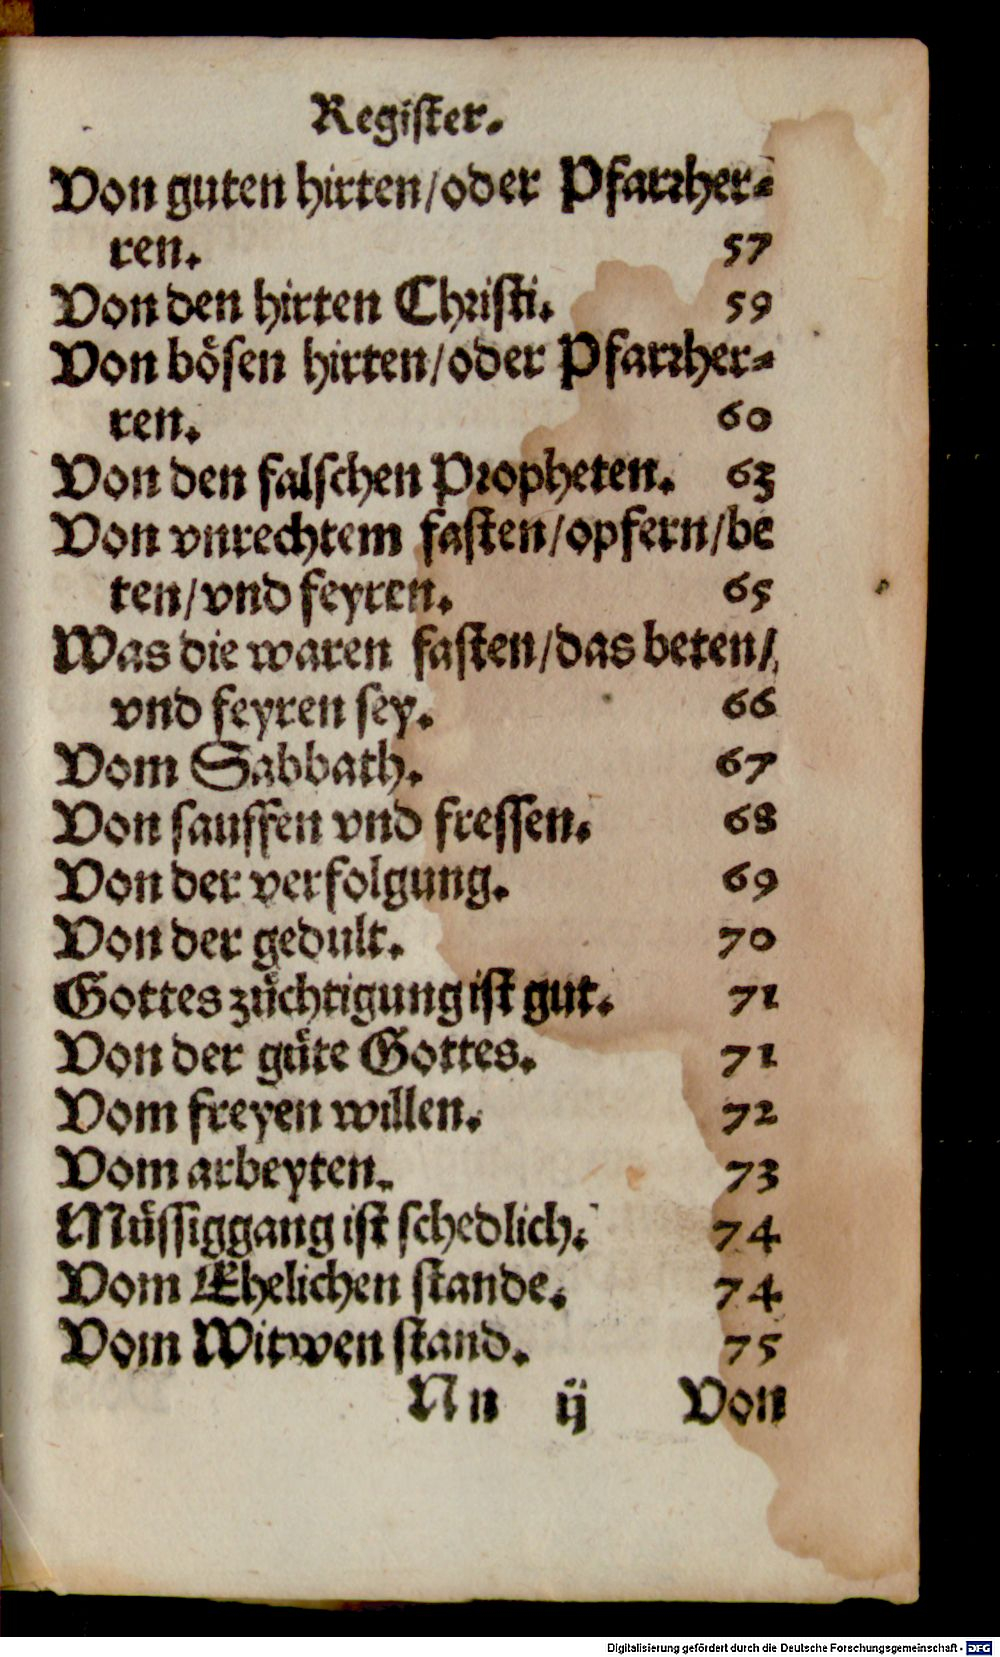 Register.
Von guten hirten/oder Pfarrher-
ren. 57
Von den hirten Christi. 59
Von bösen hirten/oder Pfarrher-
ren. 60
Von den falschen Propheten. 63
Von vnrechtem fasten/opfern/be
ten/vnd feyren. 65
Was die waren fasten/das beten/
vnd feyren sey. 66
Vom Sabbath. 67
Von sauffen vnd fressen. 68
Von der verfolgung. 69
Von der gedult. 70
Gottes züchtigung ist gut. 71
Von der güte Gottes. 71
Vom freyen willen. 72
Vom arbeyten. 73
Müssiggang ist schedlich. 74
Vom Ehelichen stande. 74
Vom Witwen stand. 75
Nn ij Von
Digitalisierung gefördert durch die Deutsche Forschungsgemeinschaft - DFG